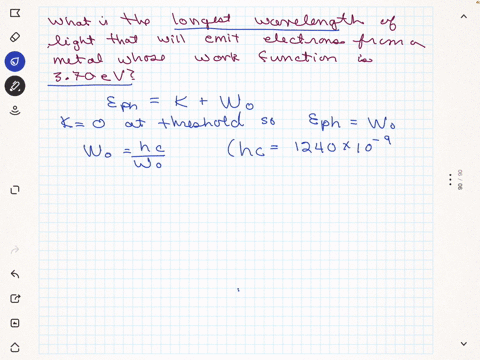 What is the longest wavelength of
light that will emit electrons from a
metal whose work function is
3.70 eV?
Eph = K + W₀
K = 0 at threshold so Eph = W₀
W₀ = hc/W₀ (hc = 1240 × 10⁻⁹
00 / 00